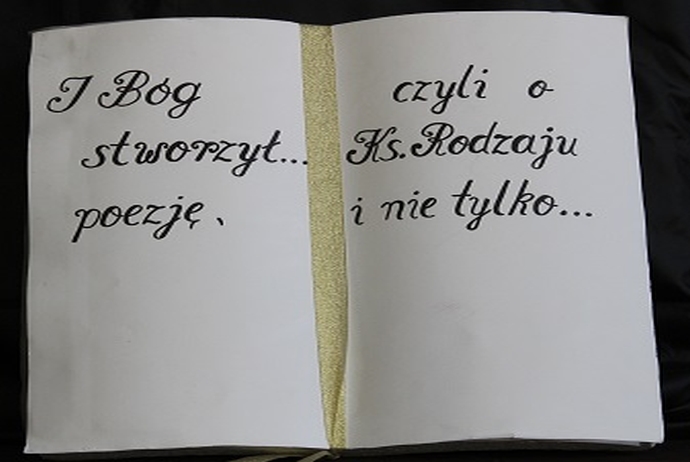 I Bóg
stworzył...
poezję,
czyli o
Ks. Rodzaju
i nie tylko...